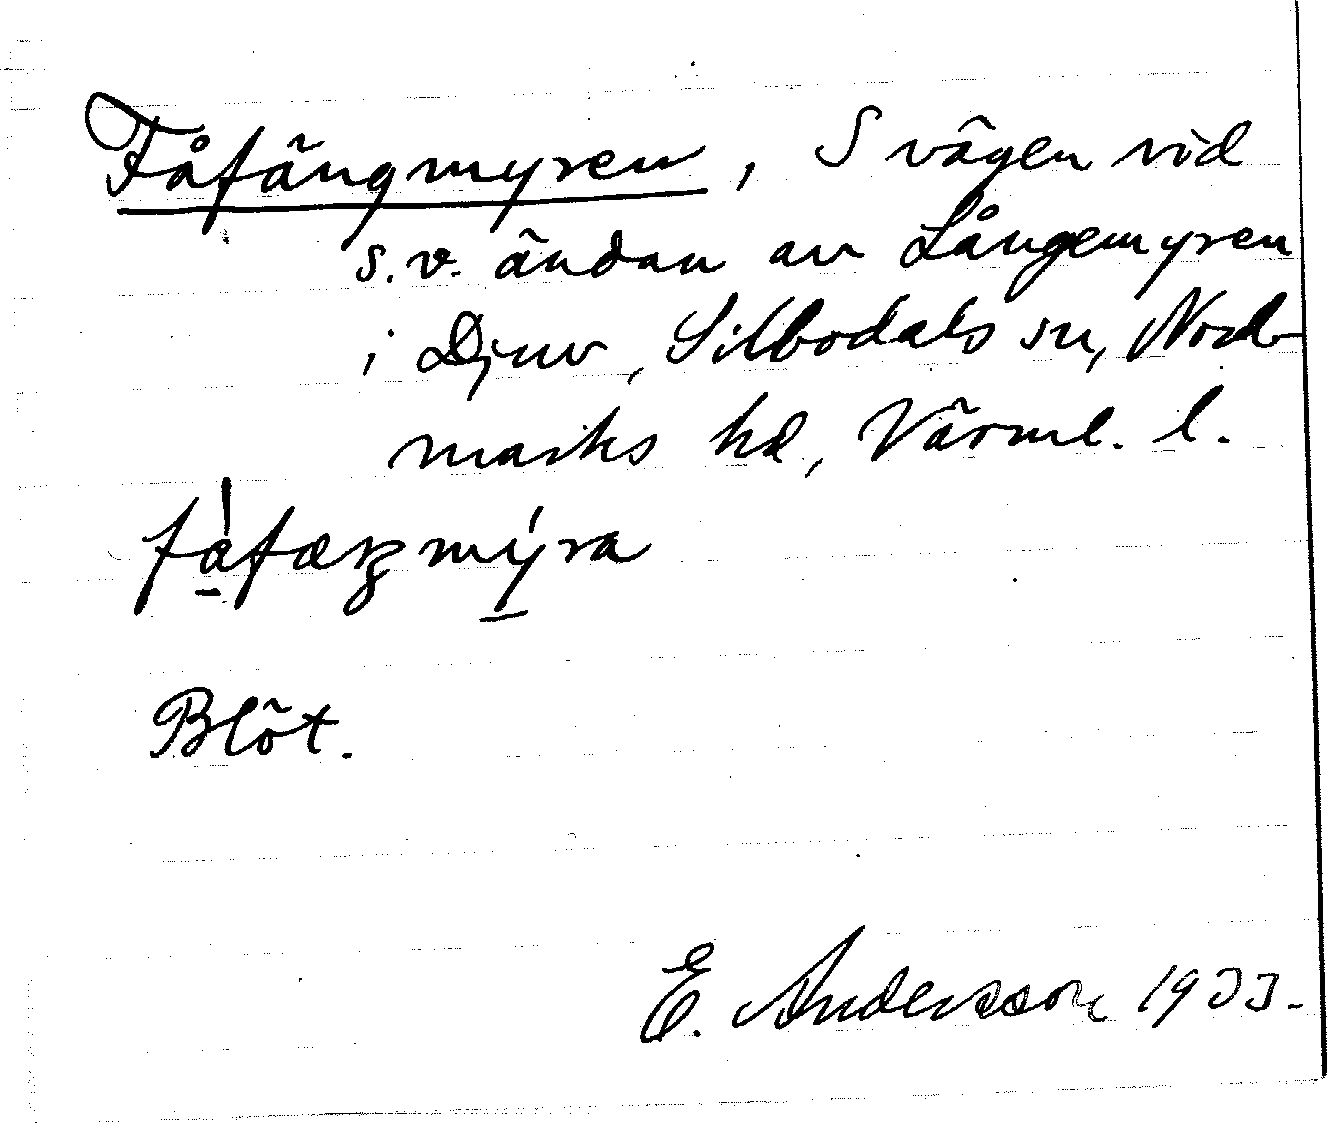 Fåfängmyren, S vägen vid
s.v. ändan av Långemyren
i Djuv, Silbodals sn, Nord-
marks hd, Värml. l.
fåfæŋmýra
Blöt.
E. Andersson 1933.